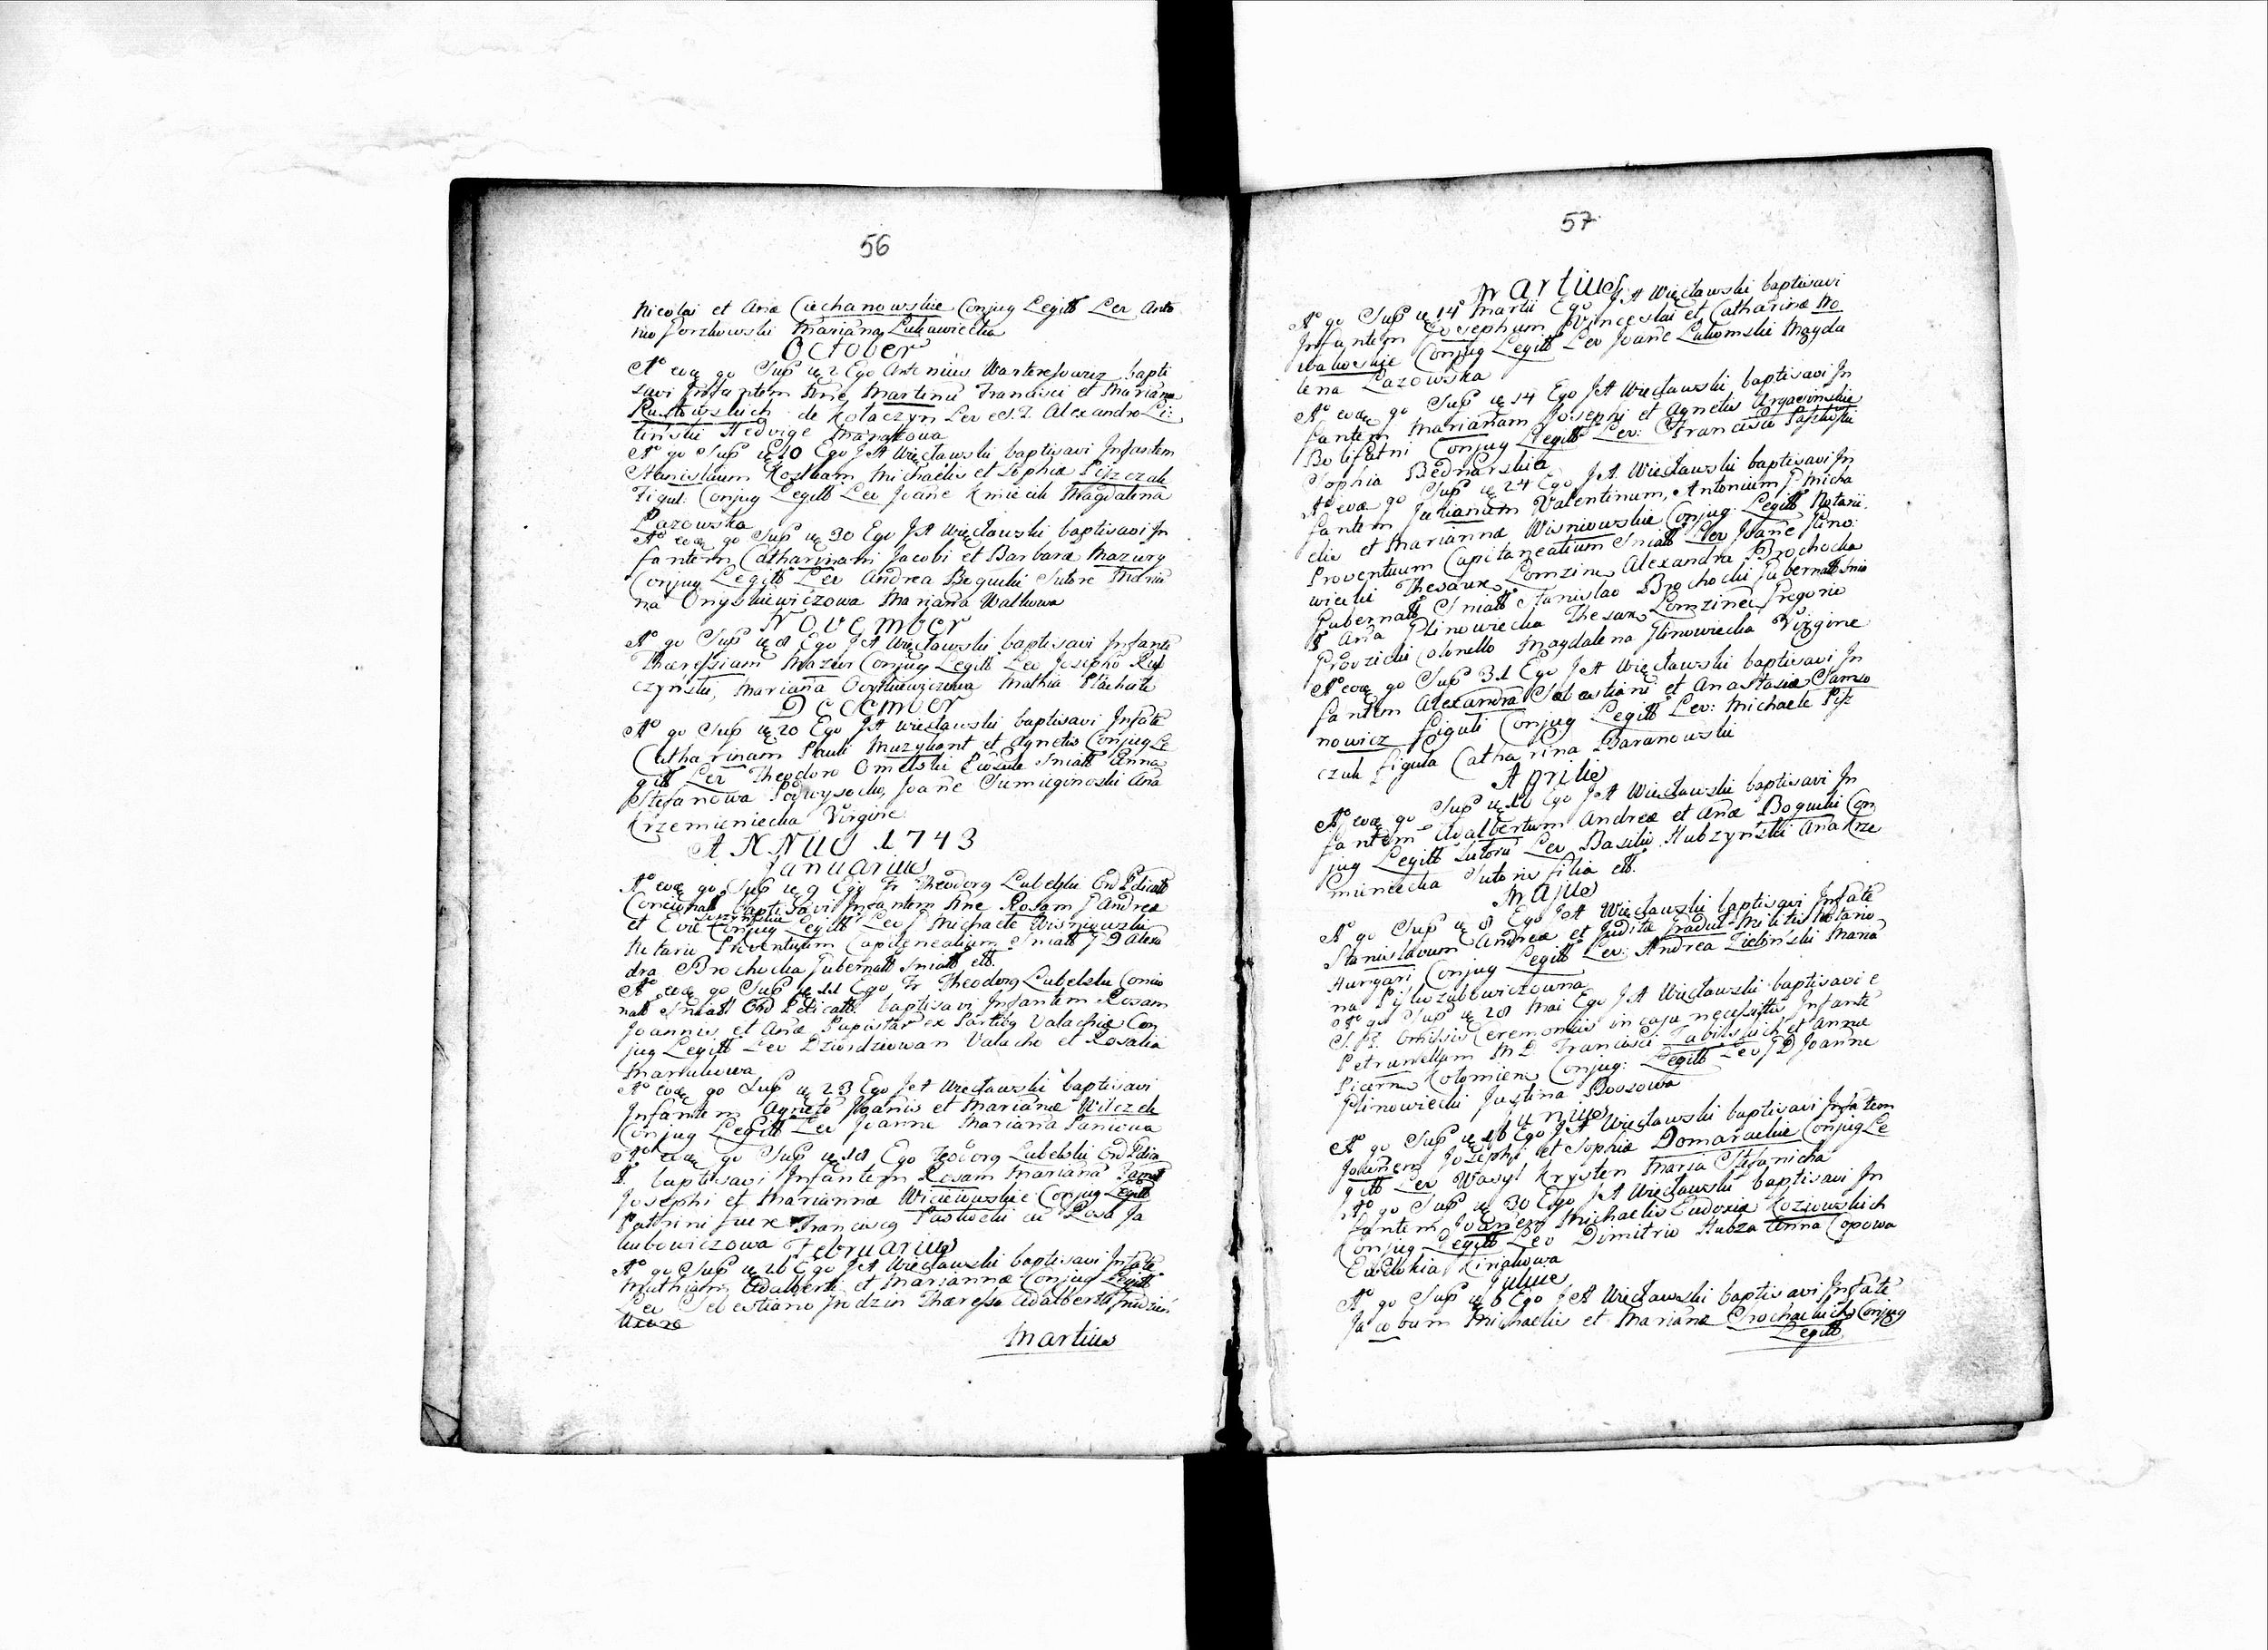 56
Nicolai et Anæ Ciechanowskie Conjug Legitt Lev Anto
nio Gorzkowski Mariana Lukawiecka
October
Aº eoq go Sup ę 2 Ego Antonius Warteresowicz bapti
savi Infantem nne Martinū Francisci et Mariana
Rustowskich de Kołaczyn Lev es. I. Alexandro Li:
tiński Hedvige
Aº go Sup ę 10 Ego J A Więcławski baptisavi Infantem
Stanislaum Kostkam Michaelis et Sophiæ Piszczek
Figul. Conjug Legitt Lev Joane Kmiecik Magdalena
Lazowska
Aº eoq go Sup ę 30 Ego J A Więcławski baptisavi In
fantem Catharinam Jacobi et Barbaræ Mazury
Conjug Legitt Lev Andrea Bogucki Sutore Maria
na Onyskiewiczowa Mariana Walkowa
November
Aº go Sup ę 8 Ego J A Więcławski baptisavi Infante
Theressiam Mazur Conjug Legitt Lev Josepho Rud
czyński, Mariana Mathia
December
Aº go Sup ę 20 Ego J A Więcławski baptisavi Infāte
Catharinam Pauli Muzykant et Agnetis Conjug Le
gitt Lev Theodoro Omelski Sniatt Anna
Stefanowa Podwysocky, Joane Sumieginoski Ana
Krzemieniecka Virgine
ANNUS 1743
Januarius
Aº eoq go Sup ę 9 Ego Fr Theodorg Lubelski Ord Pdicatt
Concionatt baptisavi Infantem nne Rosam J Andrea
et Evæ Conjug Legitt Lev J Michaele Wisniowski
Notario Proventuum Capitaneatium Sniatt J D Alexa
dra Brochocka Gubernatt Sniatt ett.
Aº eoq go Sup ę 11 Ego Fr Theodorg Lubelski Concio
natt Sniatt Ord Pdicatt baptisavi Infantem Rosam
Joannis et Anæ ex Partibg Valachiæ Con
jug Legitt Lev Dziordziowan Valacho et Rosalia
Markukowa
Aº eoq go Sup ę 23 Ego J A Więcławski baptisavi
Infantem Agnetē Joānis et Marianæ Wilczek
Conjug Legitt Lev Joanne Mariana Paniowa
Aº eoq go Sup ę 18 Ego Teodorg Lubelski Ord Pdica
tt. baptisavi Infantem Rosam Mariana
Josephi et Mariannæ Wiciewskie Conjug Legitt
Pattrini fuere Franciscg Pastwecki cū Rosa Ja
kubowiczowa
Februarius
Aº go Sup ę 26 Ego J A Więcławski baptisavi Infātē
Mathiam Adalberti et Mariannæ Conjug Legitt
Lev Sebestiano Grodzin Theressa Adalberta Grudzin
Uxore
Martius
57
Martius
Aº go Sup ę 14 Martii Ego J A Więcławski baptisavi
Infantem Josephum Vinceslai et Catharinæ No
wakowskie Conjug Legitt Lev Joane Lukomski Magda
lena Lazowska
Aº eoq go Sup ę 14 Ego J A Więcławski baptisavi In
fantem Mariannam Josephi et Agnetis
Conjug Legitt Lev: Francisco
Sophia Bednarska
Aº eoq go Sup ę 24 Ego J A Więcławski baptisavi In
fantem Julianum Valentinum, Antonium J Micha
elis et Mariannæ Wisniowskie Conjug: Legitt Notarii
Proventuum Capitaneatium Sniatt Lev Joane Glino:
wiecki Thesaur Lomzinen Alexandra Brochocka
Gubernatt Sniatt Stanislao Brochocki Gubernatt Snia
tt Ana Glinowiecka Thesaur Lomzinen Gregorio
Colonello Magdalena Glinowiecka Virgine
Aº eoq go Sup ę 31 Ego J A Więcławski baptisavi In
fantem Alexandrā Sebastiani et Anastasiæ Samso
nowicz Figuli Conjug Legitt Lev: Michaele Pisz
czek Figula Catharina Baranowski
Aprilis
Aº eoq go Sup ę 16 Ego J A Więcławski baptisavi In
fantem Adalbertum Andreæ et Anæ Bogucki Con
jug Legitt Sutorū Lev Basilii Hubzyński Ana Krze
mieniecka Sutoris filia ett.
Majus
Aº go Sup ę 8 Ego J A Więcławski baptisavi Infātē
Stanislaum Andreæ et Juditæ Militis
Hungari Conjug Legitt Lev: Andrea Zieliński Maria
na
Aº go Sup ę 28 Mai Ego J A Więcławski baptisavi e
omissis Ceremoniis in casu necessittis Infantē
Petrunellam M D Francisci et Annæ
Kolomien Conjug: Legitt Lev J D Joanne
Glinowiecki Justina Bossowa
Junius
Aº go Sup ę 16 Ego J A Więcławski baptisavi Infātem
Joānem Josephi et Sophiæ Domarackie Conjug Le
gitt Lev Wasyl Krysten Maria Stefanicha
Aº go Sup ę 30 Ego J A Więcławski baptisavi In
fantem Joanem Michaelis Eudoxiæ Koziowskich
Conjug Legitt Lev Dimitrio Hubza Anna Copowa
Eudokia Kiriakowa
Julius
Aº go Sup ę 6 Ego J A Więcławski baptisavi Infātē
Jacobum Michaelis et Marianæ Prochaickich Conjug
Legitt